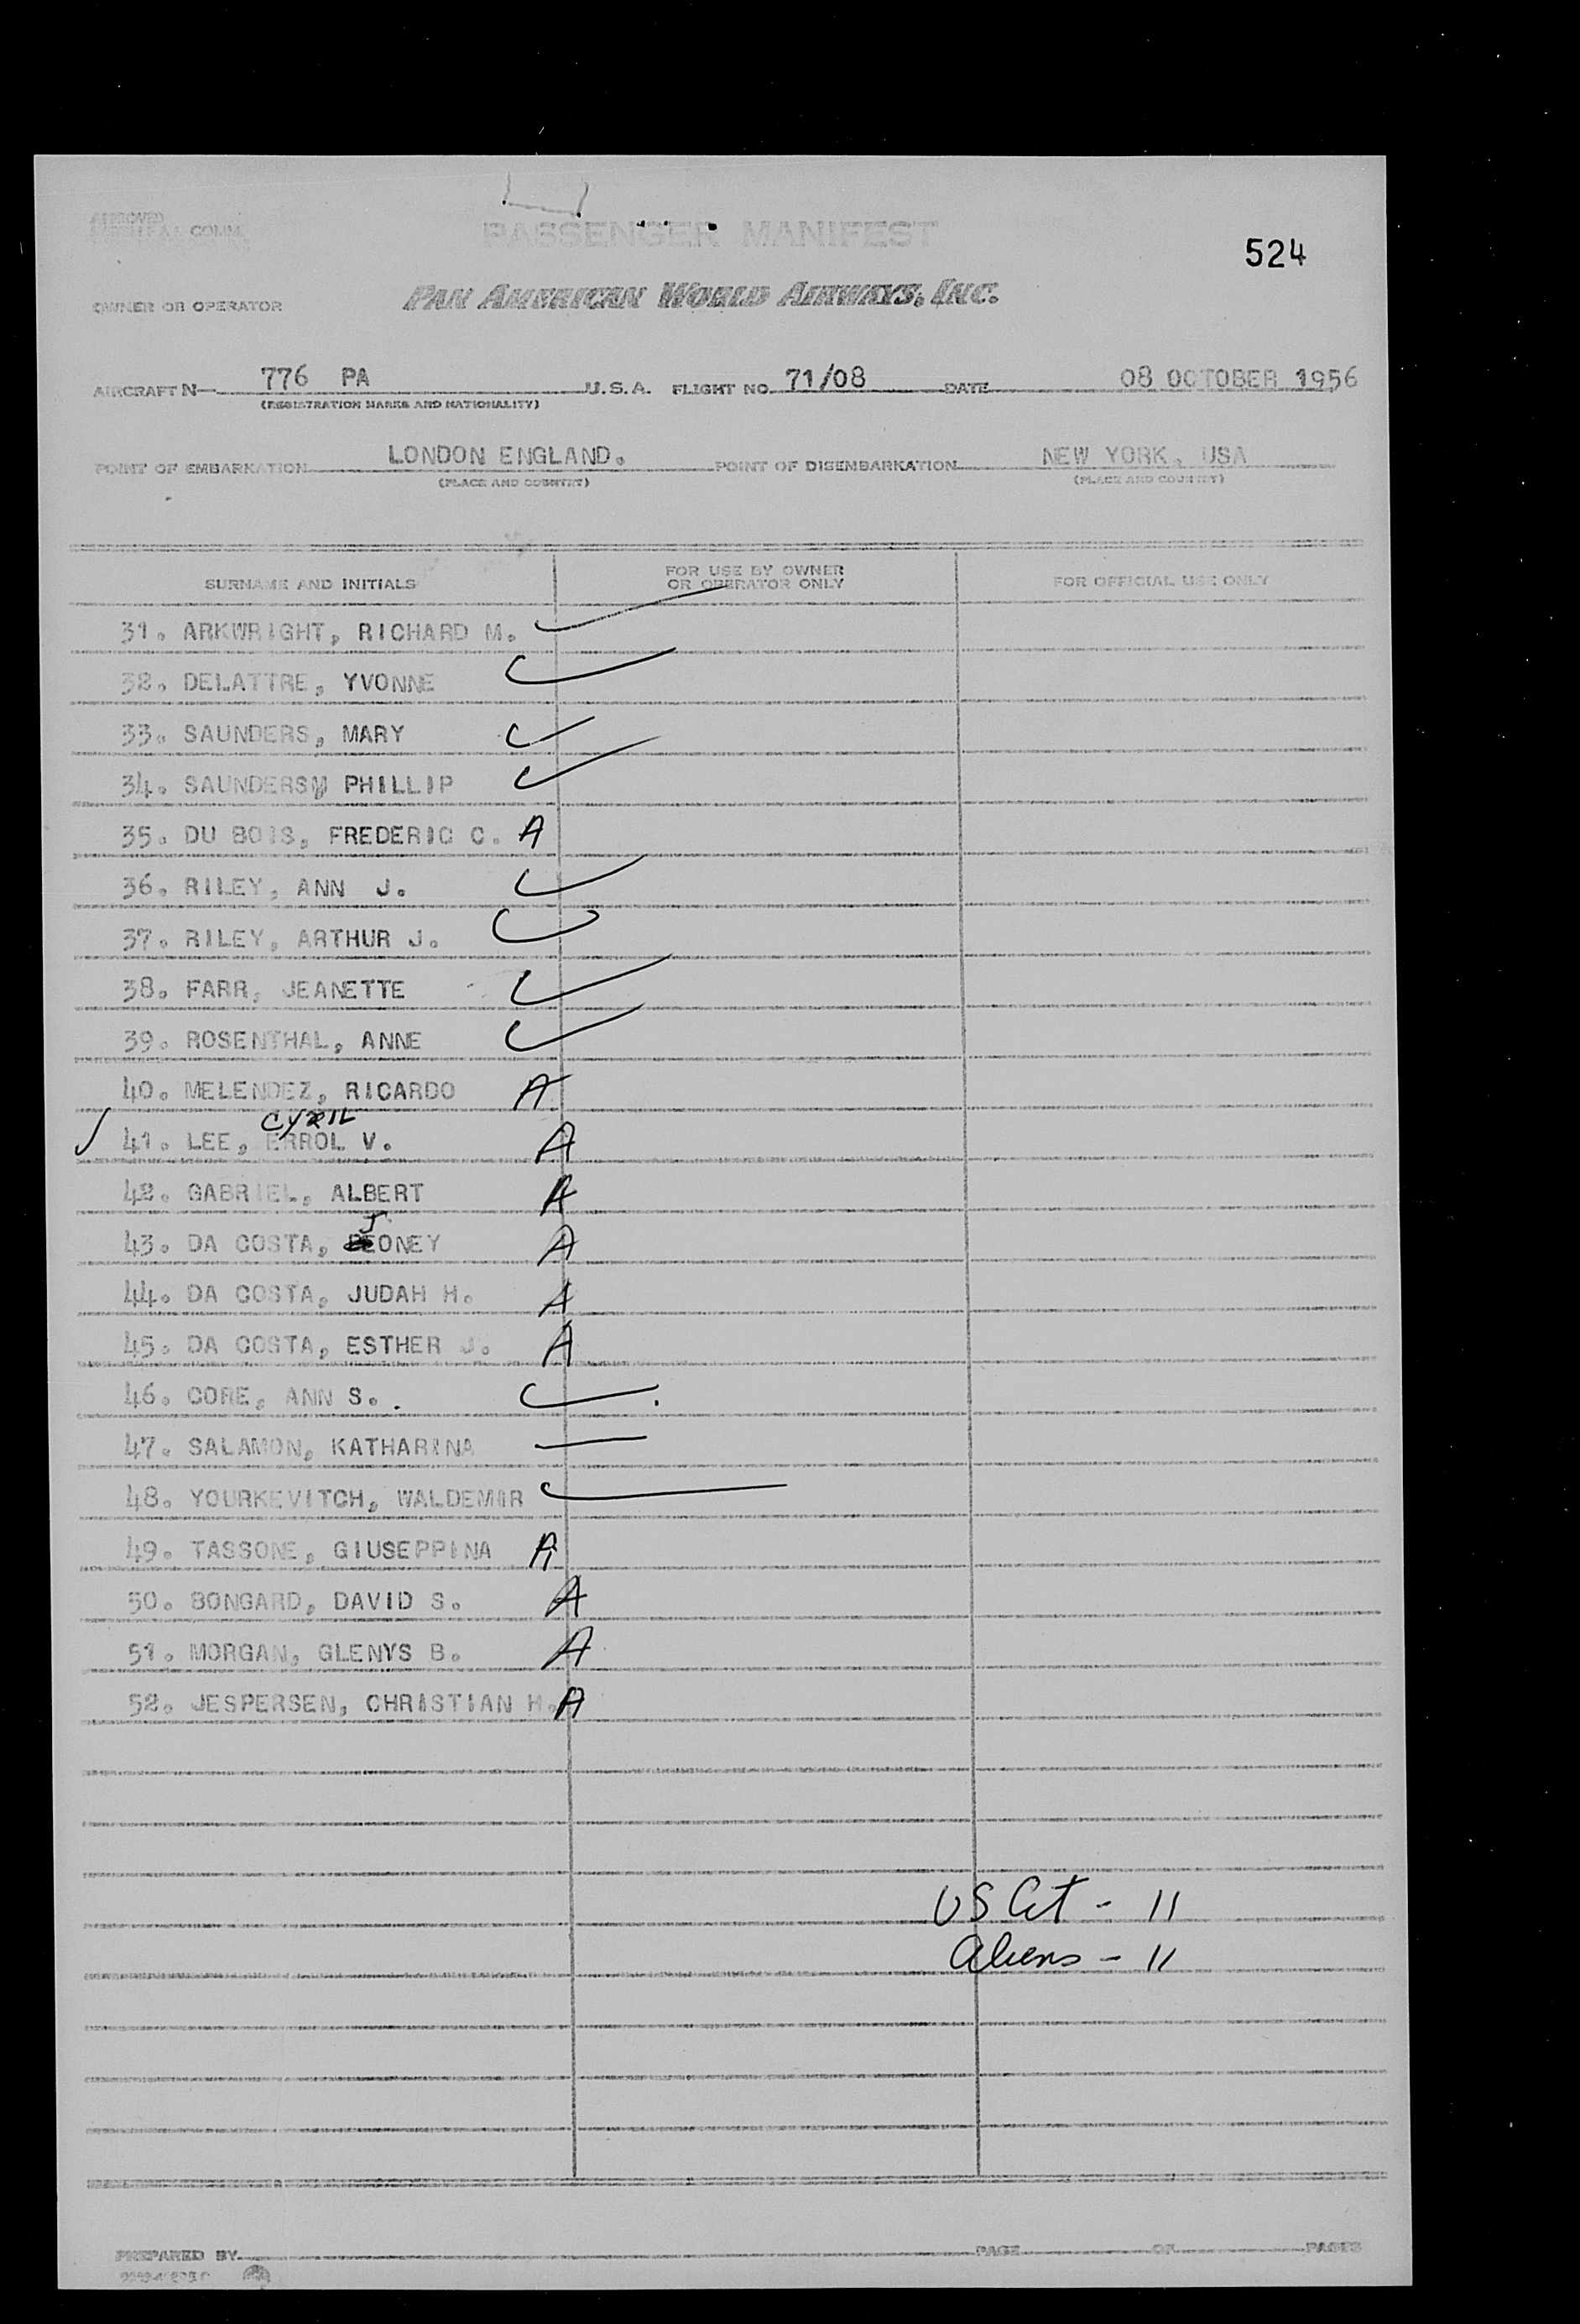 APPROVED
COMM.
PASSENGER MANIFEST
524
OWNER OR OPERATOR PAN AMERICAN WORLD AIRWAYS, INC.
AIRCRAFT N— 776 PA U.S.A. FLIGHT NO. 71/08 DATE 08 OCTOBER 1956
(REGISTRATION MARKS AND NATIONALITY)
POINT OF EMBARKATION LONDON ENGLAND. POINT OF DISEMBARKATION NEW YORK, USA
(PLACE AND COUNTRY) (PLACE AND COUNTRY)
SURNAME AND INITIALS FOR USE BY OWNER OR OPERATOR ONLY FOR OFFICIAL USE ONLY
31. ARKWRIGHT, RICHARD M. ✓
32. DELATTRE, YVONNE ✓
33. SAUNDERS, MARY ✓
34. SAUNDERS, PHILLIP ✓
35. DU BOIS, FREDERIC C. A
36. RILEY, ANN J. ✓
37. RILEY, ARTHUR J. ✓
38. FARR, JEANETTE ✓
39. ROSENTHAL, ANNE ✓
40. MELENDEZ, RICARDO A
CYRIL
✓ 41. LEE, ERROL V. A
42. GABRIEL, ALBERT A
J
43. DA COSTA, EONEY A
44. DA COSTA, JUDAH H. A
45. DA COSTA, ESTHER J. A
46. CORE, ANN S. ✓
47. SALAMON, KATHARINA —
48. YOURKEVITCH, WALDEMAR ✓
49. TASSONE, GIUSEPPINA A
50. BONGARD, DAVID S. A
51. MORGAN, GLENYS B. A
52. JESPERSEN, CHRISTIAN H. A
US Cit - 11
Aliens - 11
PREPARED BY PAGE OF PAGES